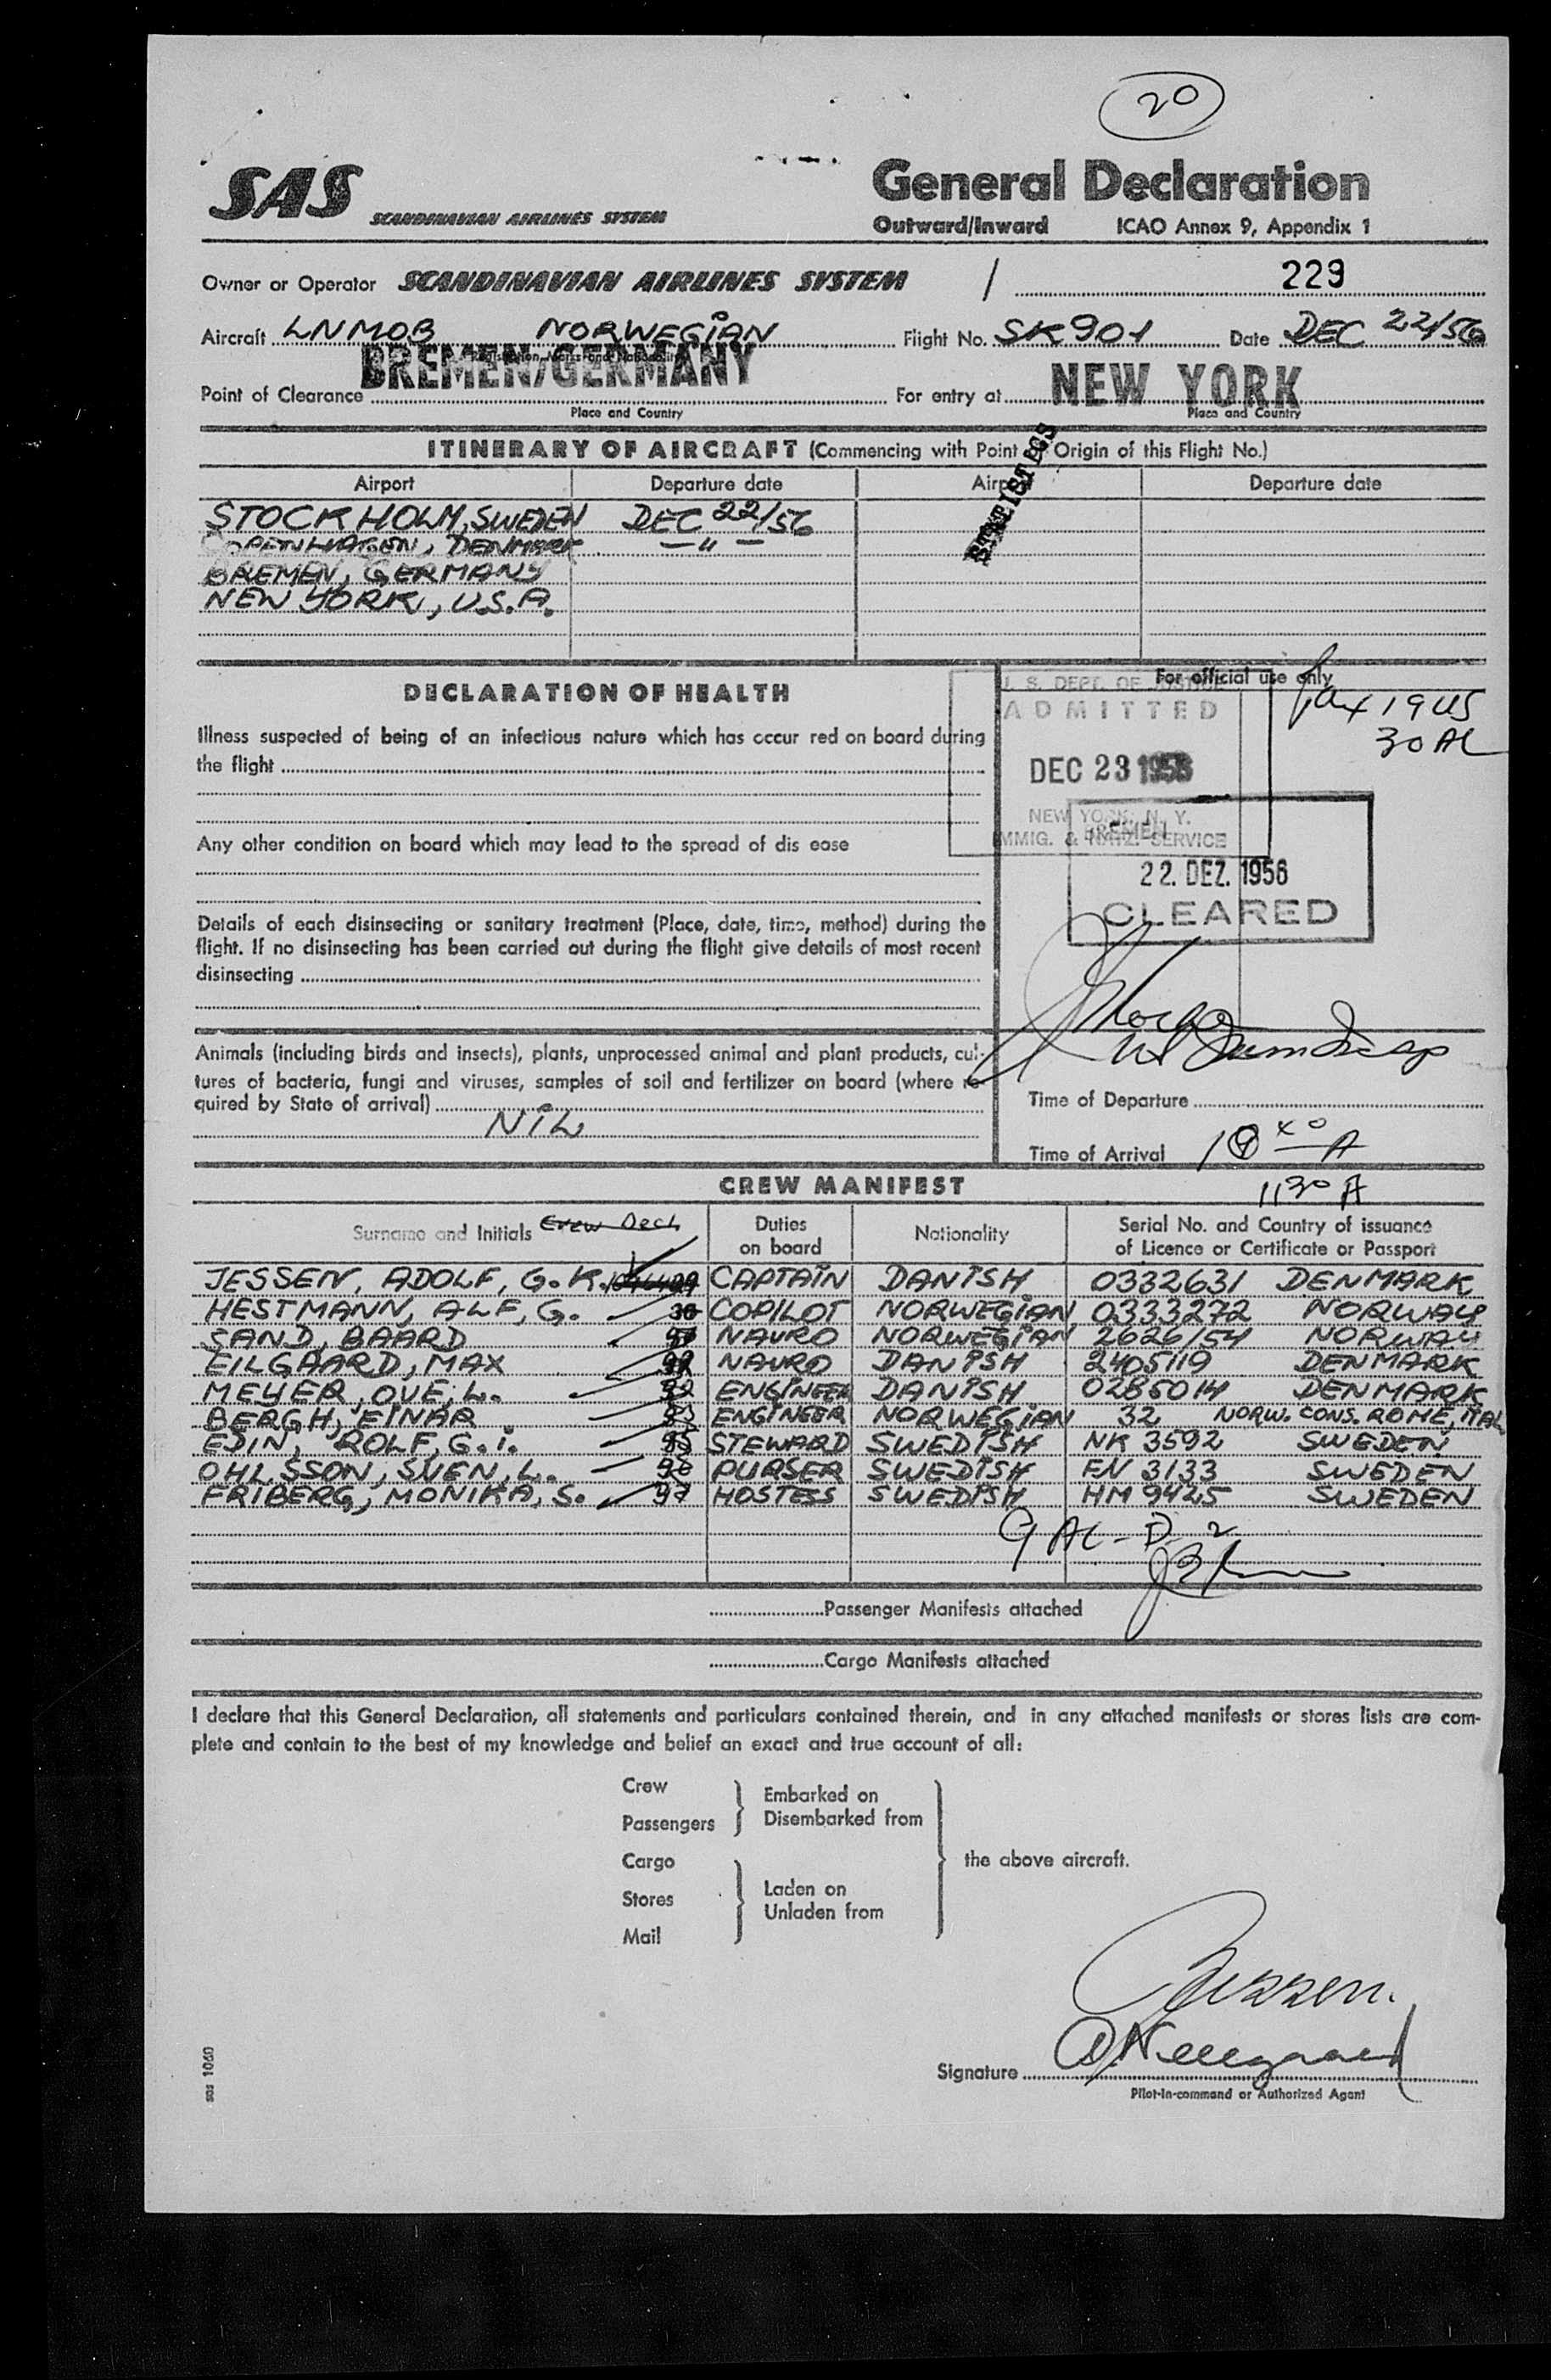 20
SAS SCANDINAVIAN AIRLINES SYSTEM
General Declaration
Outward/Inward ICAO Annex 9, Appendix 1
Owner or Operator SCANDINAVIAN AIRLINES SYSTEM / 229
Aircraft LNMOB NORWEGIAN Flight No. SK901 Date DEC 22/56
Registration Marks and Nationality
Point of Clearance BREMEN/GERMANY For entry at NEW YORK
Place and Country Place and Country
ITINERARY OF AIRCRAFT (Commencing with Point of Origin of this Flight No.)
STATISTICS
Airport Departure date Airport Departure date
STOCKHOLM, SWEDEN DEC 22/56
COPENHAGEN, DENMARK — " —
BREMEN, GERMANY
NEW YORK, U.S.A.
DECLARATION OF HEALTH
For official use only
Illness suspected of being of an infectious nature which has occur red on board during
the flight
Any other condition on board which may lead to the spread of dis ease
Details of each disinsecting or sanitary treatment (Place, date, time, method) during the
flight. If no disinsecting has been carried out during the flight give details of most recent
disinsecting
U. S. DEPT. OF JUSTICE
ADMITTED
DEC 23 1956
NEW YORK, N. Y.
IMMIG. & NATZ. SERVICE
19 US
30 AL
BREMEN
22. DEZ. 1956
CLEARED
Animals (including birds and insects), plants, unprocessed animal and plant products, cul-
tures of bacteria, fungi and viruses, samples of soil and fertilizer on board (where re-
quired by State of arrival)
NIL
Time of Departure
Time of Arrival
1130 A
CREW MANIFEST
Surname and Initials Crew Decl. Duties on board Nationality Serial No. and Country of issuance of Licence or Certificate or Passport
JESSEN, ADOLF, G. K. CAPTAIN DANISH 0332631 DENMARK
HESTMANN, ALF, G. COPILOT NORWEGIAN 0333272 NORWAY
SAND, BAARD NAVRO NORWEGIAN 2626/54 NORWAY
EILGAARD, MAX NAVRO DANISH 2405119 DENMARK
MEYER, OVE, L. ENGINEER DANISH 0285014 DENMARK
BERGH, EINAR ENGINEER NORWEGIAN 32 NORW. CONS. ROME, ITAL
EDIN, ROLF, G. I. STEWARD SWEDISH NK 3592 SWEDEN
OHLSSON, SVEN, L. 96 PURSER SWEDISH FN 3133 SWEDEN
FRIBERG, MONIKA, S. 97 HOSTESS SWEDISH HM 9425 SWEDEN
9 AL - D 2
Passenger Manifests attached
Cargo Manifests attached
I declare that this General Declaration, all statements and particulars contained therein, and in any attached manifests or stores lists are com-
plete and contain to the best of my knowledge and belief an exact and true account of all:
Crew
Passengers
Embarked on
Disembarked from
Cargo
Stores
Mail
Laden on
Unladen from
the above aircraft.
Jessen.
Signature
Pilot-in-command or Authorized Agent
sas 1060